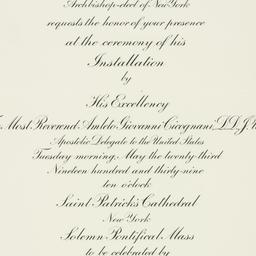 Archbishop-elect of New York
requests the honor of your presence
at the ceremony of his
Installation
by
His Excellency
Most Reverend Amleto Giovanni Cicognani, D.D., J.U.
Apostolic Delegate to the United States
Tuesday morning, May the twenty-third
Nineteen hundred and thirty-nine
ten o'clock
Saint Patrick's Cathedral
New York
Solemn Pontifical Mass
to be celebrated by